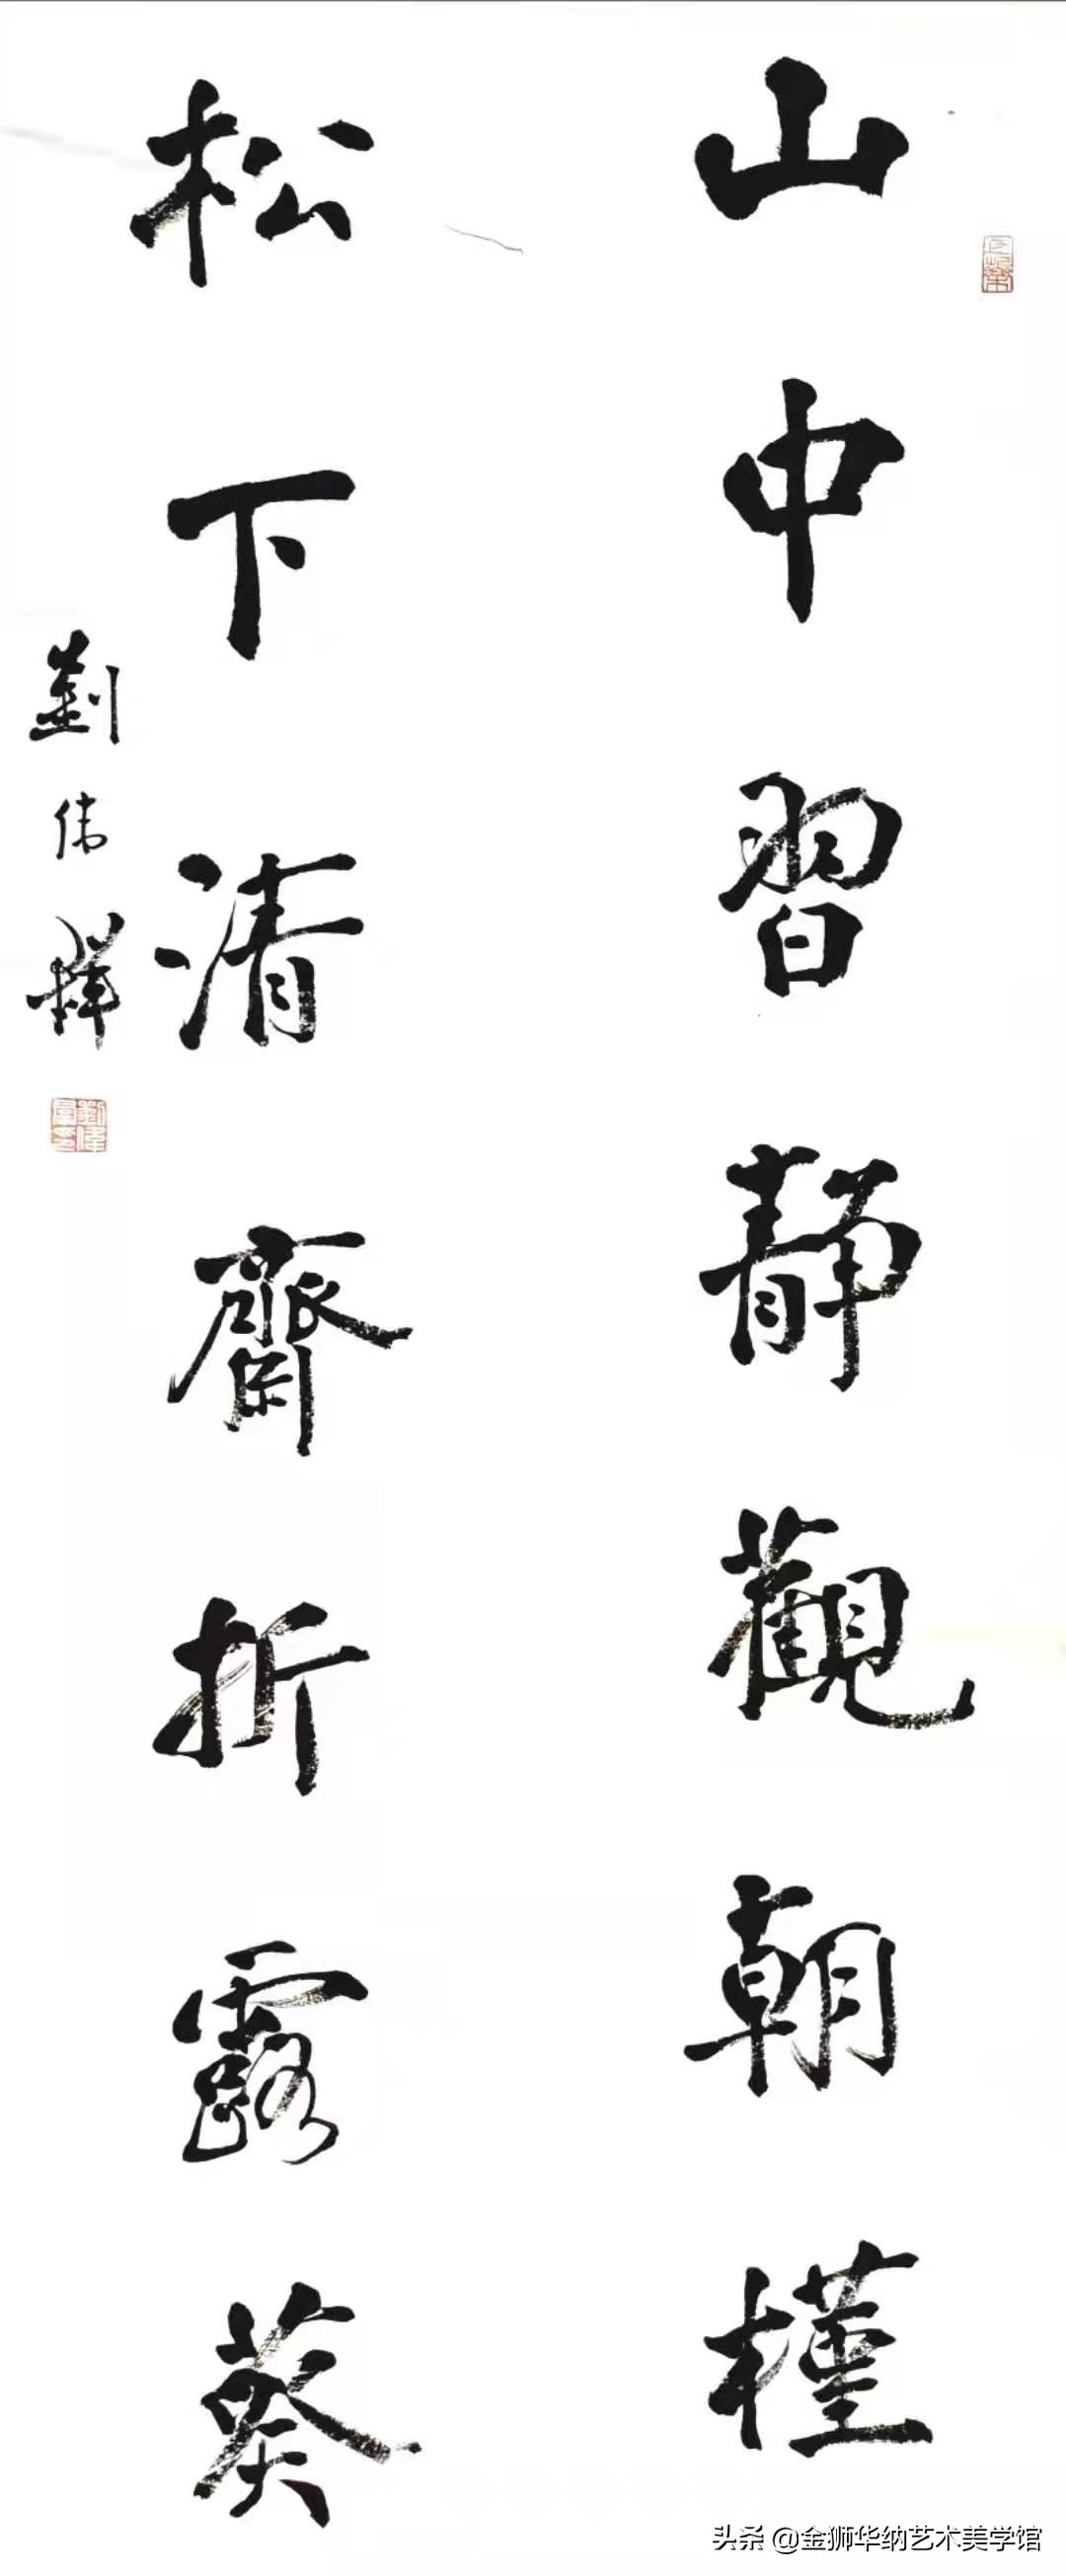 山中習靜觀朝槿
松下清齋折露葵
劉伟
头条 @金狮华纳艺术美学馆